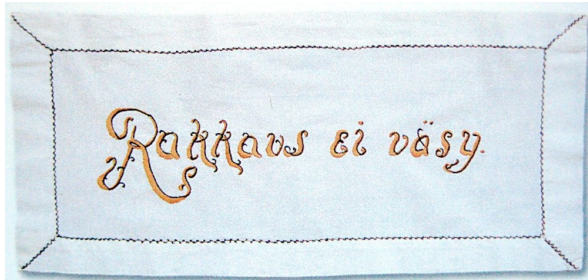 Rakkaus ei väsy.